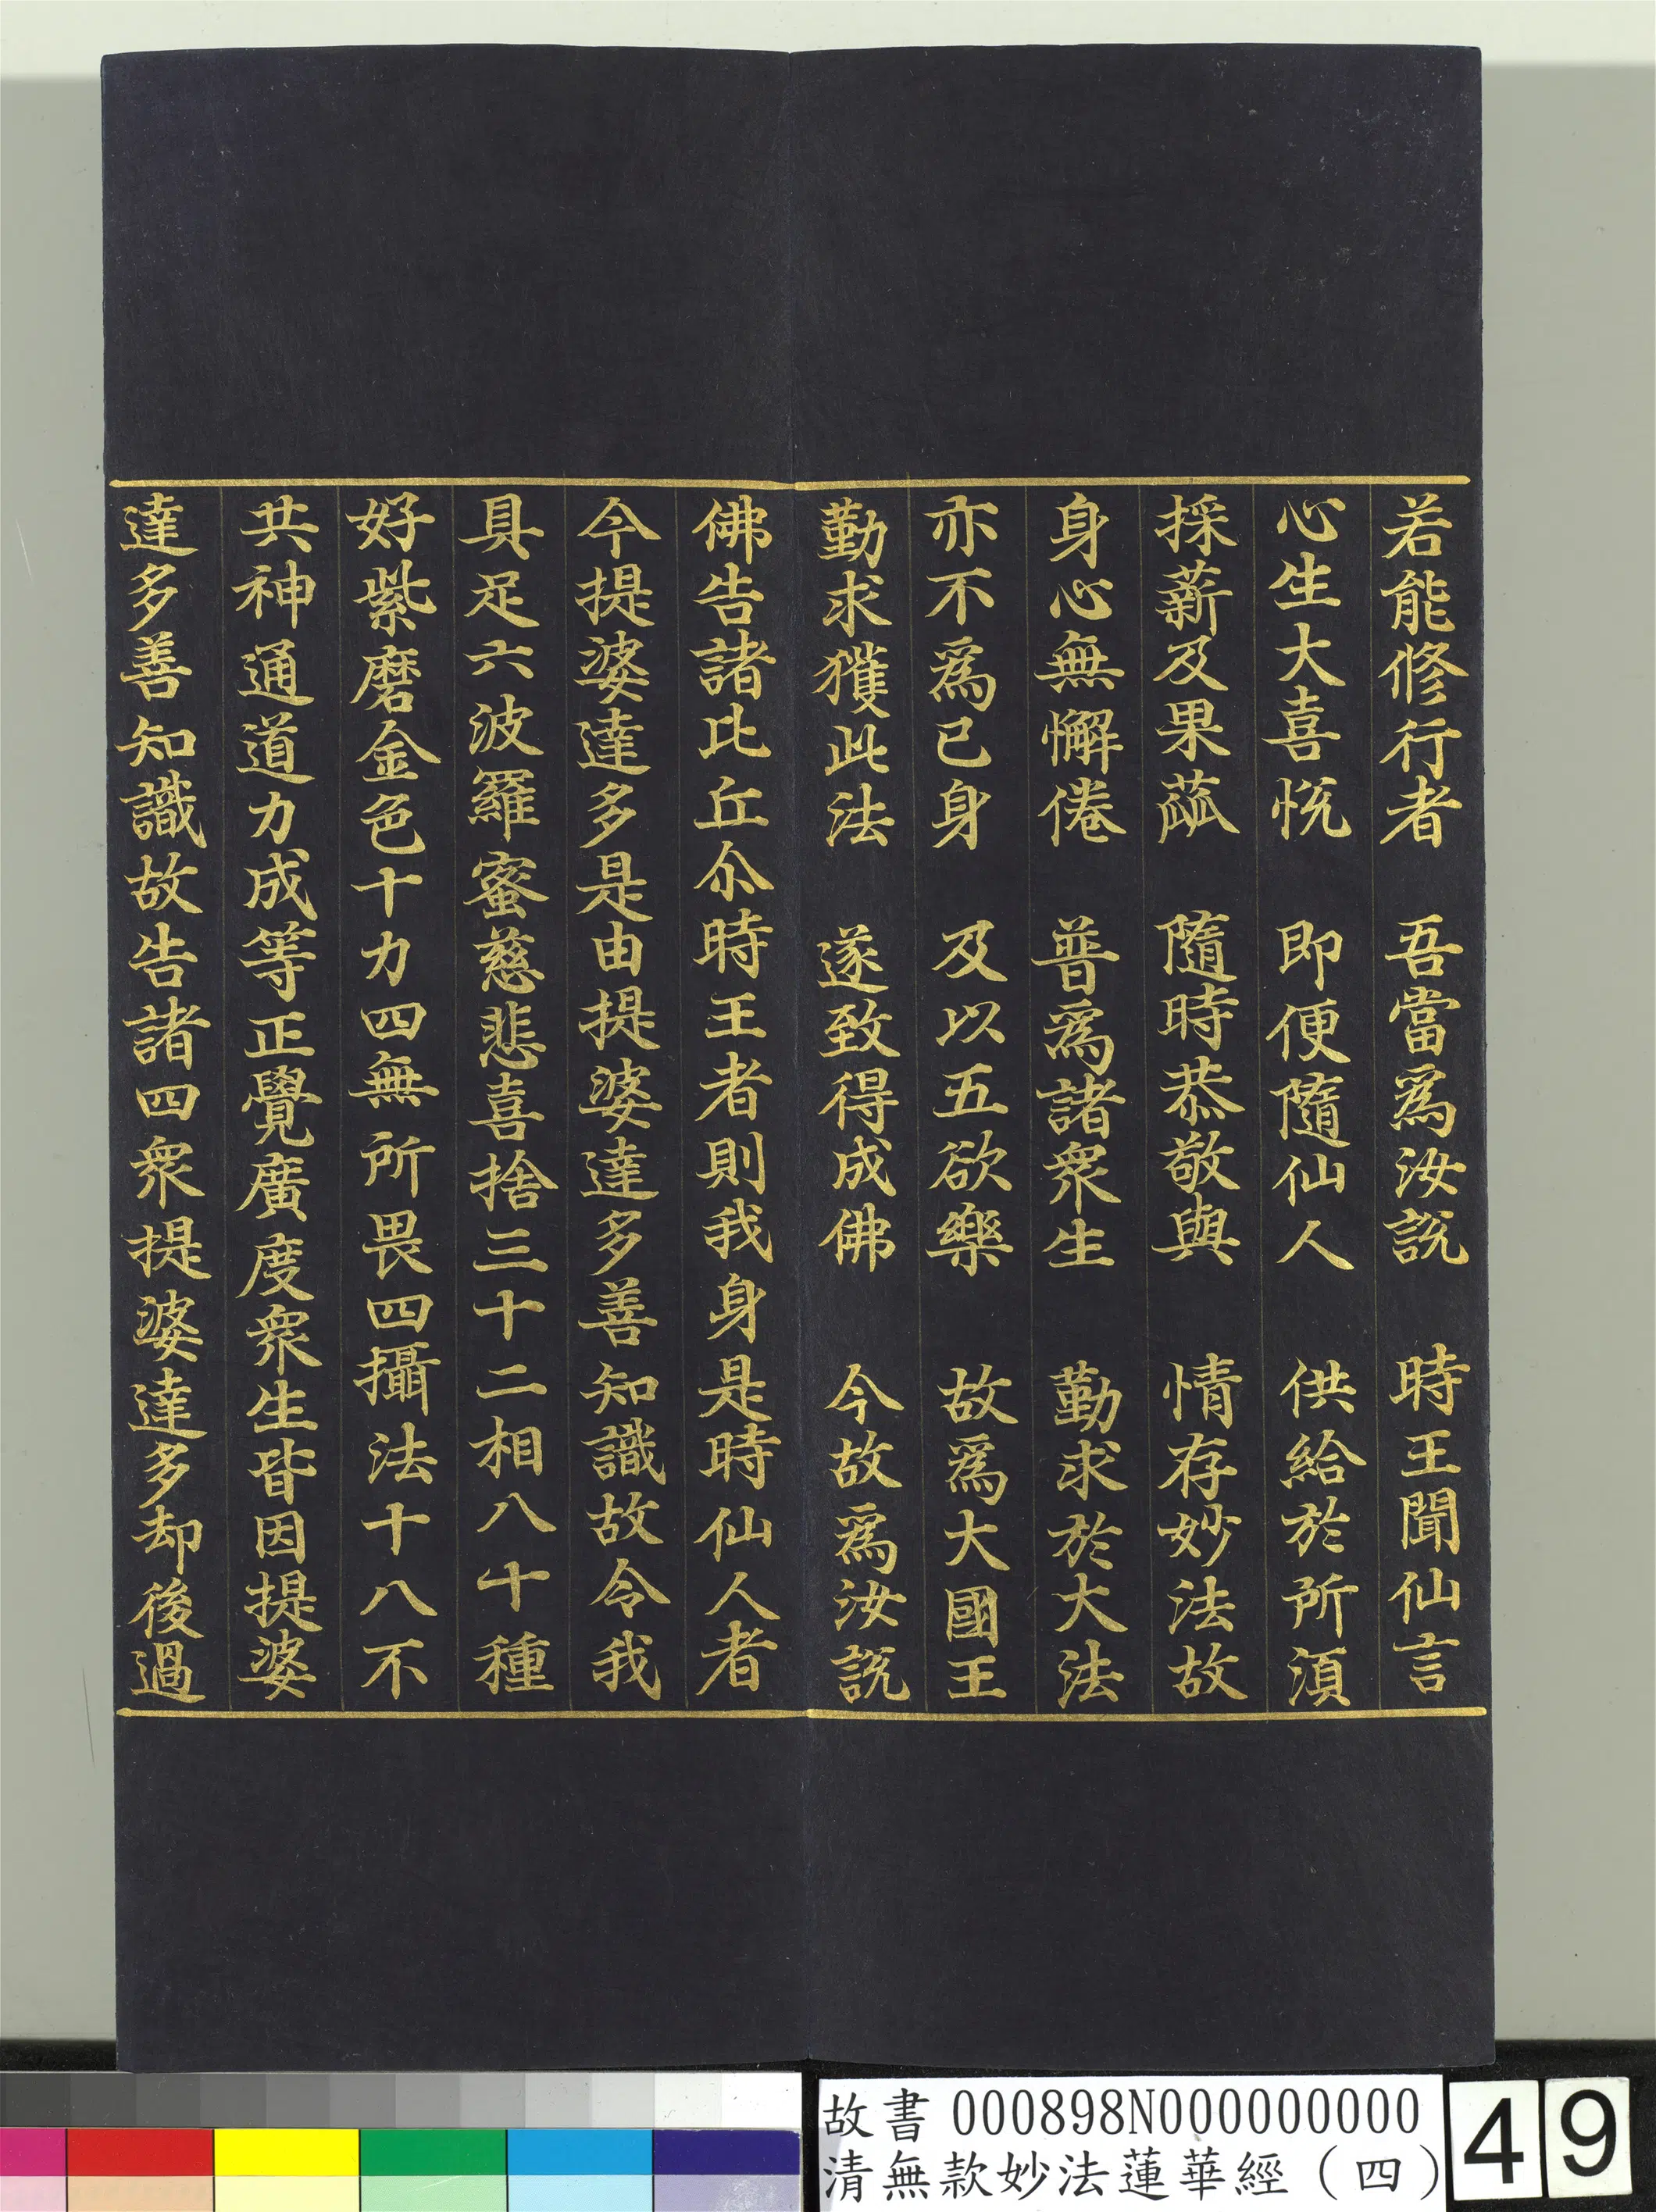 若能修行者　吾當爲汝説　時王聞仙言
心生大喜悅　即便隨仙人　供給於所湏
採薪及果蓏　隨時恭敬與　情存妙法故
身心無懈倦　普爲諸衆生　勤求於大法
亦不爲已身　及以五欲樂　故爲大國王
勤求獲此法　遂致得成佛　今故爲汝説
佛告諸比丘尒時王者則我身是時仙人者
今提婆達多是由提婆達多善知識故令我
具足六波羅蜜慈悲喜捨三十二相八十種
好紫磨金色十力四無所畏四攝法十八不
共神通道力成等正覺廣度衆生皆因提婆
達多善知識故告諸四衆提婆達多却後過
故書 000898N000000000
清無款妙法蓮華經（四）
49